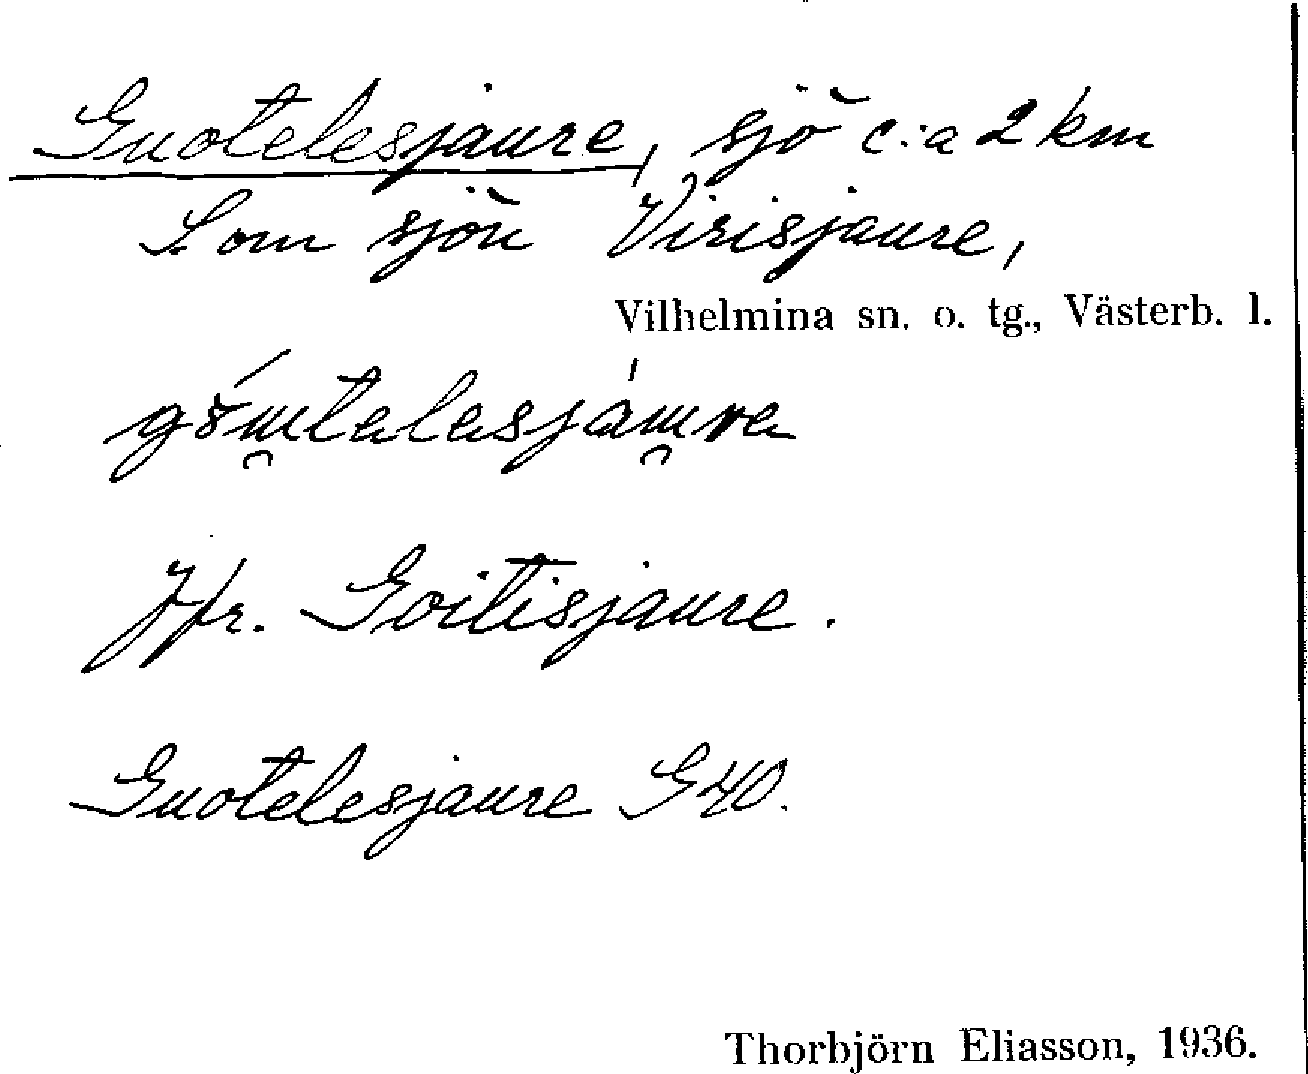 Guotelesjaure, sjö c:a 2 km
S. om sjön Virisjaure,
Vilhelmina sn. o. tg., Västerb. l.
Jfr. Goitisjaure.
Guotelesjaure G40.
Thorbjörn Eliasson, 1936.